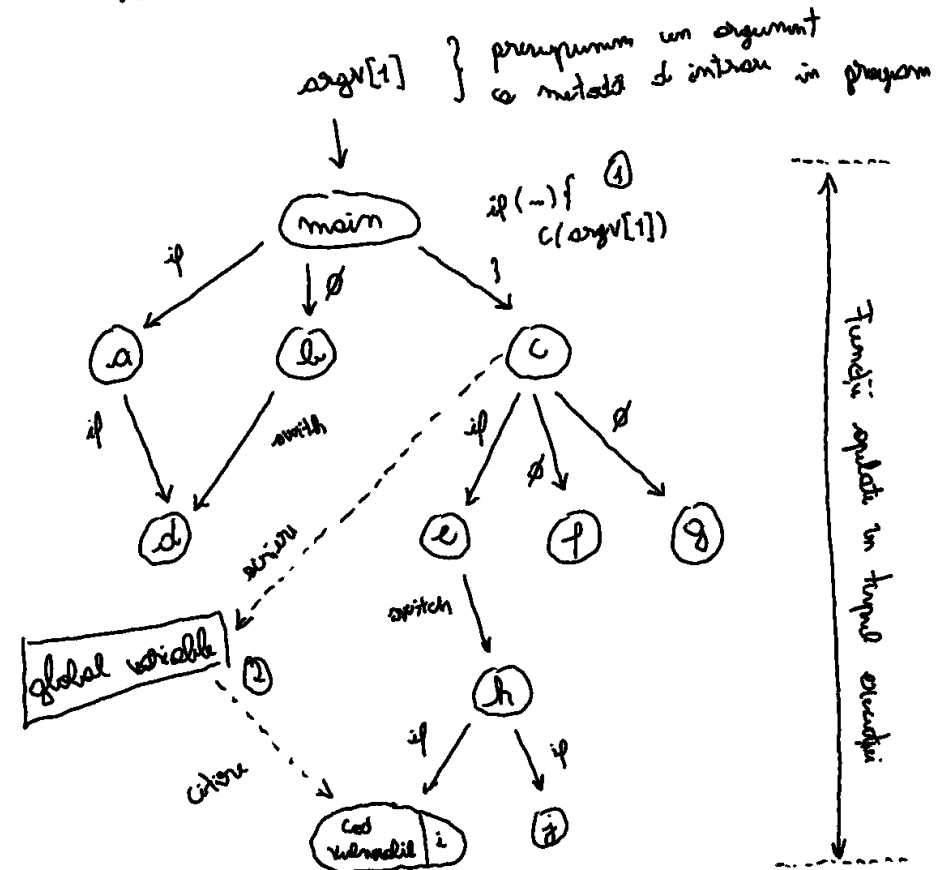 argv[1] } presupunem un argument
ca metodă de intrare în program
main
if (...) { ①
c(argv[1])
}
if
∅
a
b
c
if
switch
if
∅
∅
d
e
f
g
scriere
switch
global variable
②
h
citire
if
if
cod
vulnerabil
i
j
Funcții apelate în timpul execuției